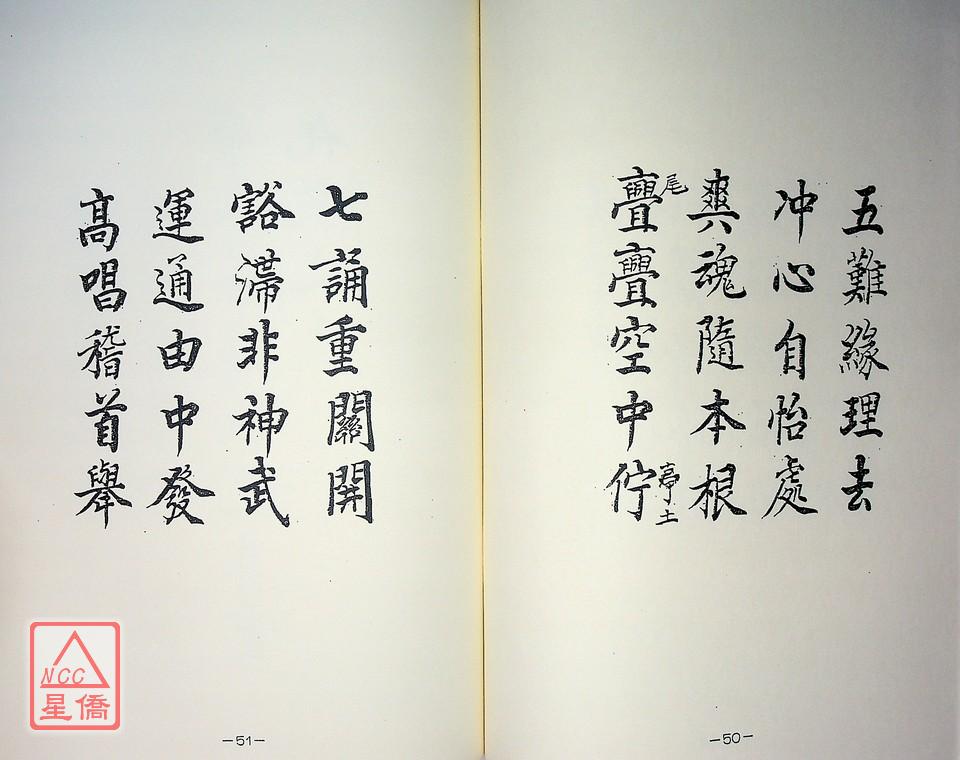 五難緣理去
冲心自怡處
爽魂隨本根
亹亹空中佇
尾
亭土
－50－
七誦重關開
豁滯非神武
運通由中發
高唱稽首舉
－51－
NCC
星僑